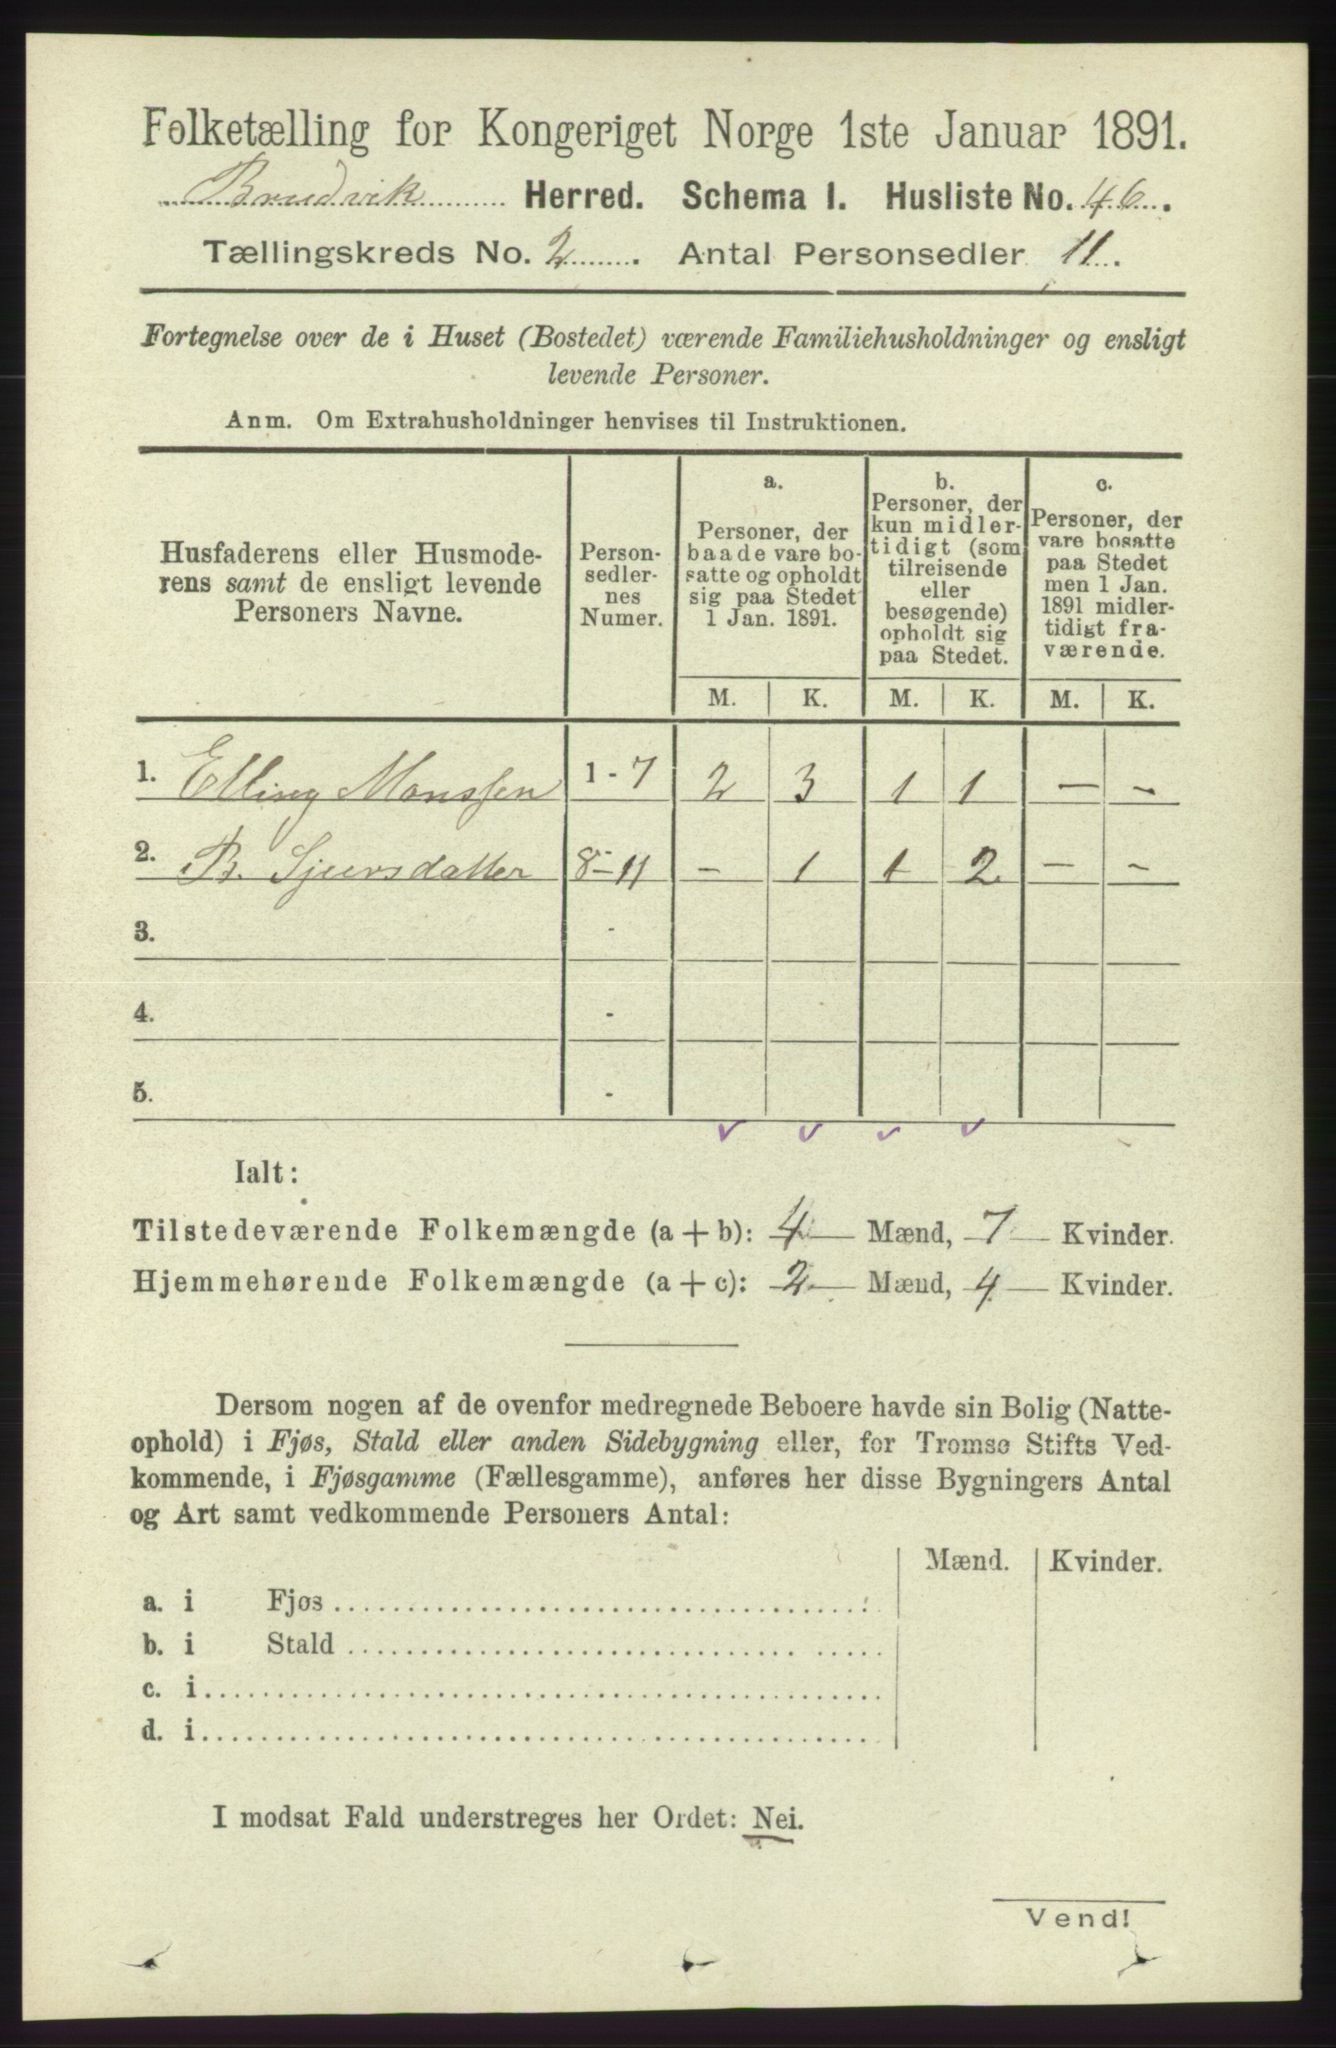 Folketælling for Kongeriget Norge 1ste Januar 1891.
Brudvik Herred. Schema I. Husliste No. 46.
Tællingskreds No. 2. Antal Personsedler 11.
Fortegnelse over de i Huset (Bostedet) værende Familiehusholdninger og ensligt
levende Personer.
Anm. Om Extrahusholdninger henvises til Instruktionen.
Husfaderens eller Husmode-
rens samt de ensligt levende
Personers Navne.
Person-
sedler-
nes
Numer.
a.
Personer, der
baade vare bo-
satte og opholdt
sig paa Stedet
1 Jan. 1891.
b.
Personer, der
kun midler-
tidigt (som
tilreisende
eller
besøgende)
opholdt sig
paa Stedet.
c.
Personer, der
vare bosatte
paa Stedet
men 1 Jan.
1891 midler-
tidigt fra-
værende.
M. K. M. K. M. K.
1. Elling Monssen 1 - 7 2 3 1 1 - -
2. B. Sjursdatter 8-11 - 1 1 2 - -
3. -
4. -
5. -
Ialt:
Tilstedeværende Folkemængde (a + b): 4 Mænd, 7 Kvinder.
Hjemmehørende Folkemængde (a + c): 2 Mænd, 4 Kvinder.
Dersom nogen af de ovenfor medregnede Beboere havde sin Bolig (Natte-
ophold) i Fjøs, Stald eller anden Sidebygning eller, for Tromsø Stifts Ved-
kommende, i Fjøsgamme (Fællesgamme), anføres her disse Bygningers Antal
og Art samt vedkommende Personers Antal:
Mænd. Kvinder.
a. i Fjøs
b. i Stald
c. i
d. i
I modsat Fald understreges her Ordet: Nei.
Vend!